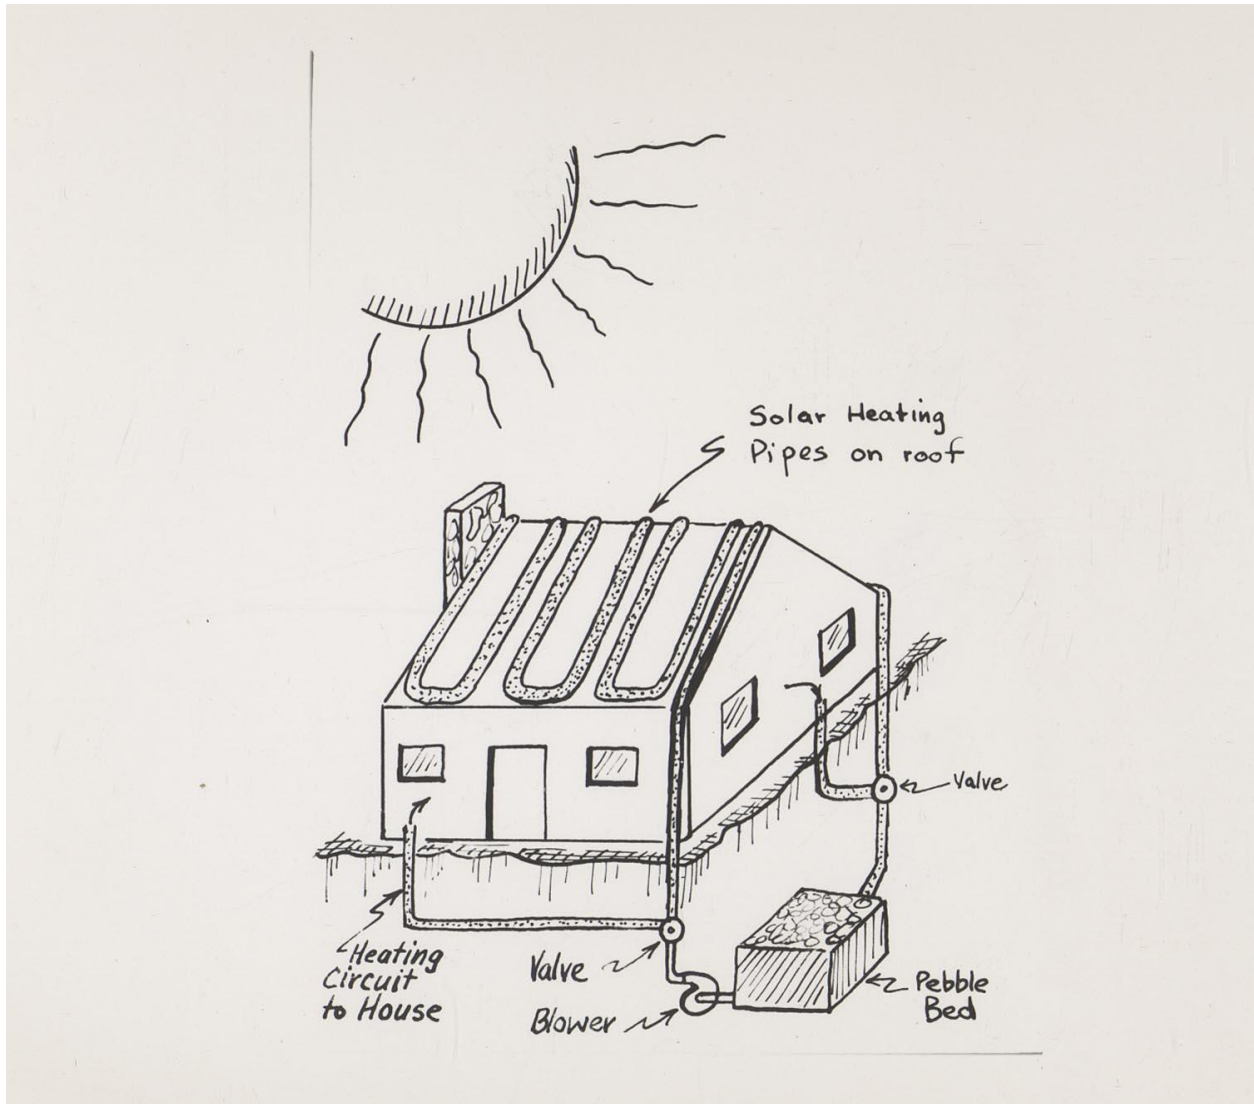 Solar Heating
Pipes on roof
Valve
Heating
Circuit
to House
Valve
Blower
Pebble
Bed